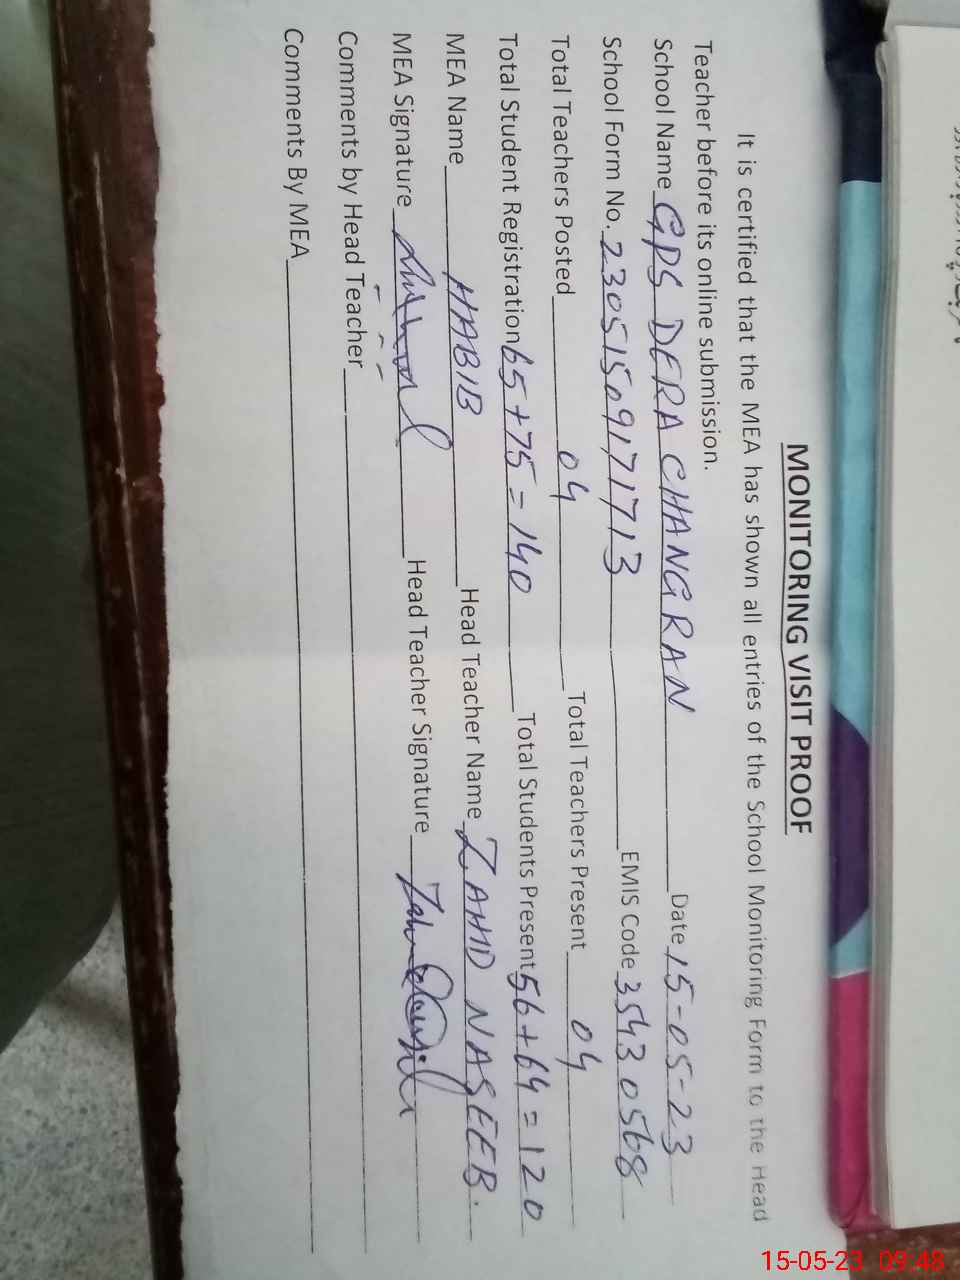 MONITORING VISIT PROOF
It is certified that the MEA has shown all entries of the School Monitoring Form to the Head
Teacher before its online submission.
School Name GPS DERA CHANGRAN Date 15-05-23
School Form No. 230515091 71713 EMIS Code 35430568
Total Teachers Posted 04 Total Teachers Present 04
Total Student Registration 65+75=140 Total Students Present 56+64=120
MEA Name HABIB Head Teacher Name ZAHID NASEEB.
MEA Signature Head Teacher Signature
Comments by Head Teacher
Comments By MEA
15-05-23 09:48